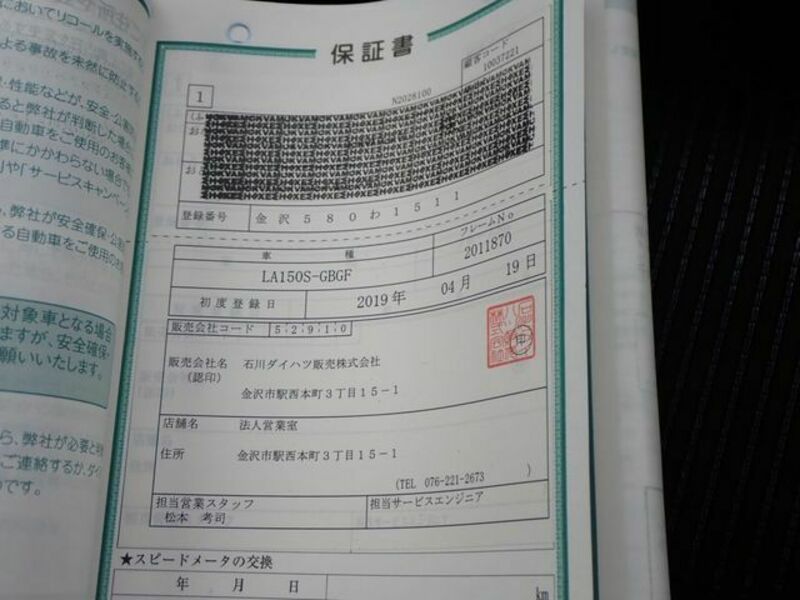 においてリコールを実施する
よる事故を未然に防止する
性能などが、安全・公害
ると弊社が判断した場合
自動車をご使用のお客様
準にかかわらない場合で
や「サービスキャンペーン
弊社が安全確保・公害
る自動車をご使用のお
対象車となる場合
ますが、安全確保・
願いいたします。
ら、弊社が必要と
ご連絡するか、ダイ
のです。
保証書
顧客コード
10037221
N2028100
1
登録番号 金沢 580わ1511
車種
フレームNo
LA150S-GBGF
2011870
初度登録日 2019年 04月 19日
販売会社コード 52910
販売会社名 石川ダイハツ販売株式会社
(認印)
金沢市駅西本町3丁目15-1
店舗名 法人営業室
住所 金沢市駅西本町3丁目15-1
(TEL 076-221-2673 )
担当営業スタッフ
担当サービスエンジニア
松本 考司
★スピードメータの交換
年 月 日
km